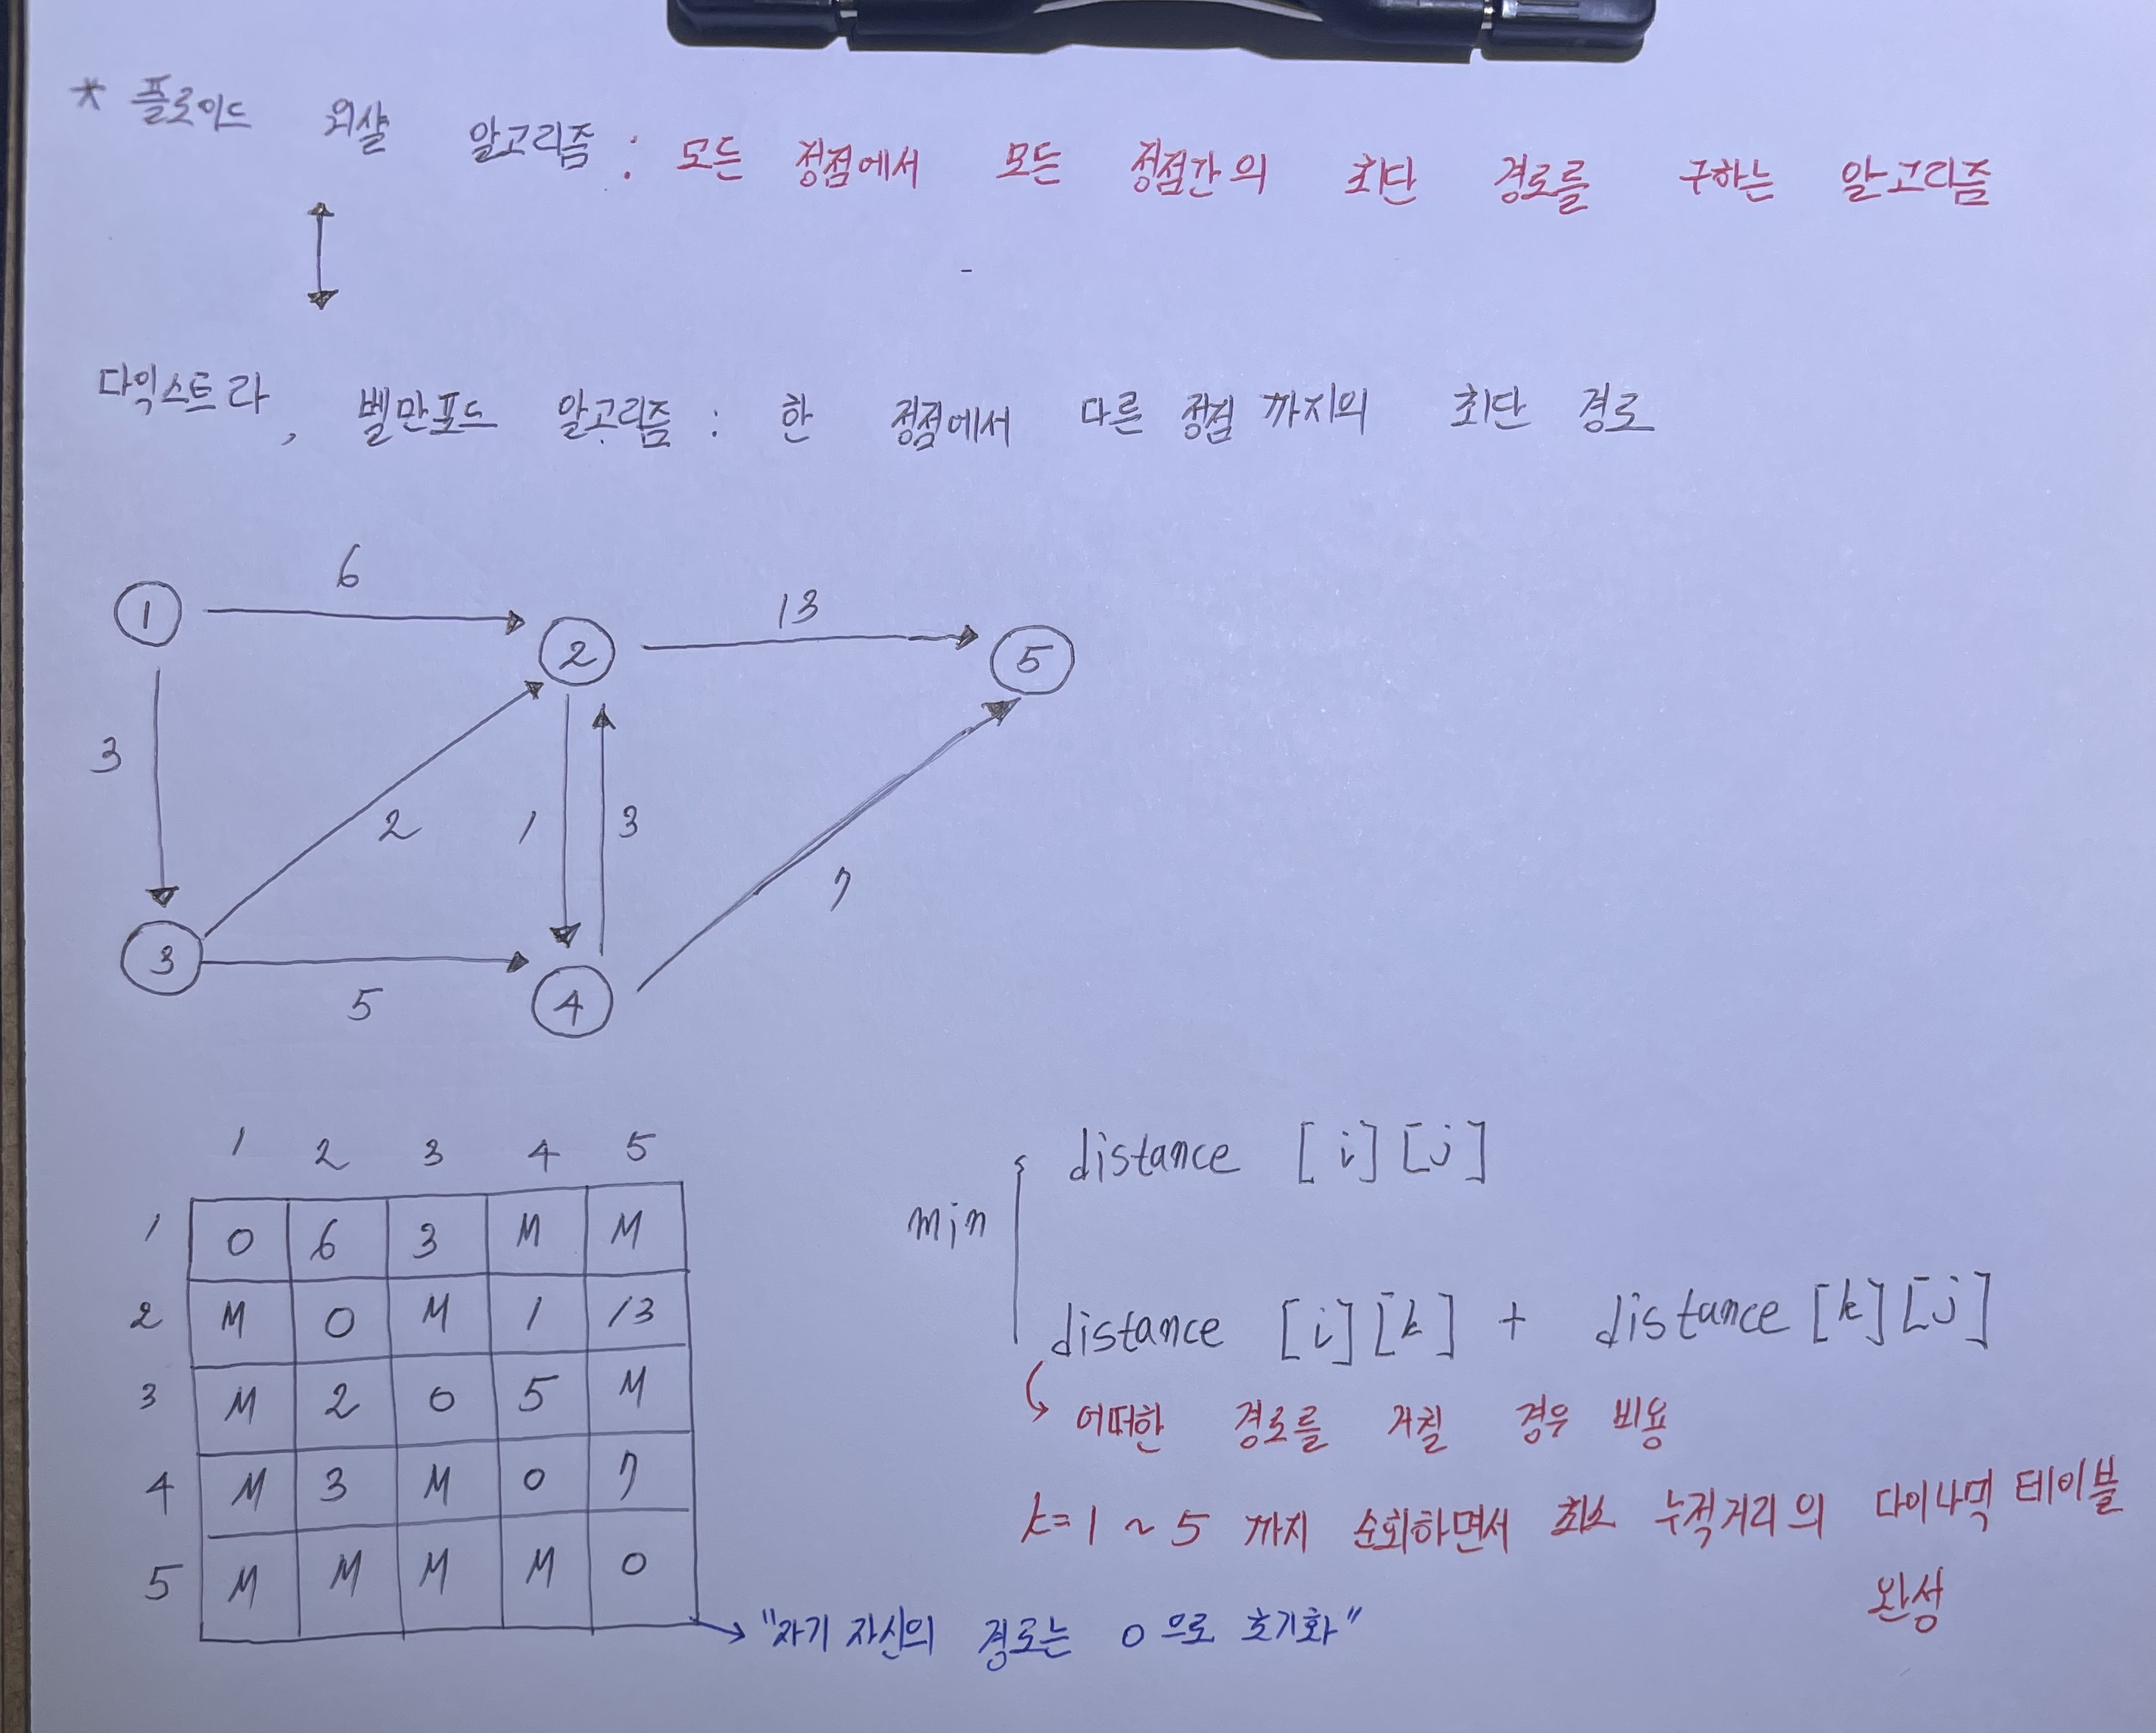 * 플로이드 워샬 알고리즘 : 모든 정점에서 모든 정점간의 최단 경로를 구하는 알고리즘
다익스트라, 벨만포드 알고리즘 : 한 정점에서 다른 정점 까지의 최단 경로
6
1
13
2
5
3
2
1
3
7
3
5
4
1 2 3 4 5
1 0 6 3 M M
2 M 0 M 1 13
3 M 2 0 5 M
4 M 3 M 0 7
5 M M M M 0
min
distance [i][j]
distance [i][k] + distance [k][j]
어떠한 경로를 거칠 경우 비용
k=1 ~ 5 까지 순회하면서 최소 누적거리의 다이나믹 테이블
완성
"자기 자신의 경로는 0으로 초기화"